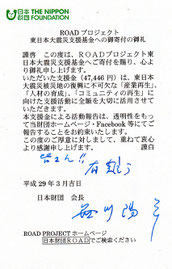 日本 THE NIPPON
財団 FOUNDATION
ROADプロジェクト
東日本大震災支援基金への御寄付の御礼
謹啓 この度は、ROADプロジェクト東
日本大震災支援基金へご寄付を賜り、心より
御礼申し上げます。
いただいた支援金(47,446円)は、東日本
大震災被災地の復興に不可欠な「産業再生」、
「人材の育成」、「コミュニティの再生」に
向けた支援活動に全額を大切に活用させてい
ただきます。
本支援金による活動報告は、透明性をもっ
て当財団ホームページ・Facebook等にてご
報告することをお約束いたします。
この度のご厚意に対しまして、重ねて衷心
より感謝申し上げます。 謹白
平成29年3月吉日
日本財団 会長
ROAD PROJECTホームページ
日本財団ROADでご検索ください